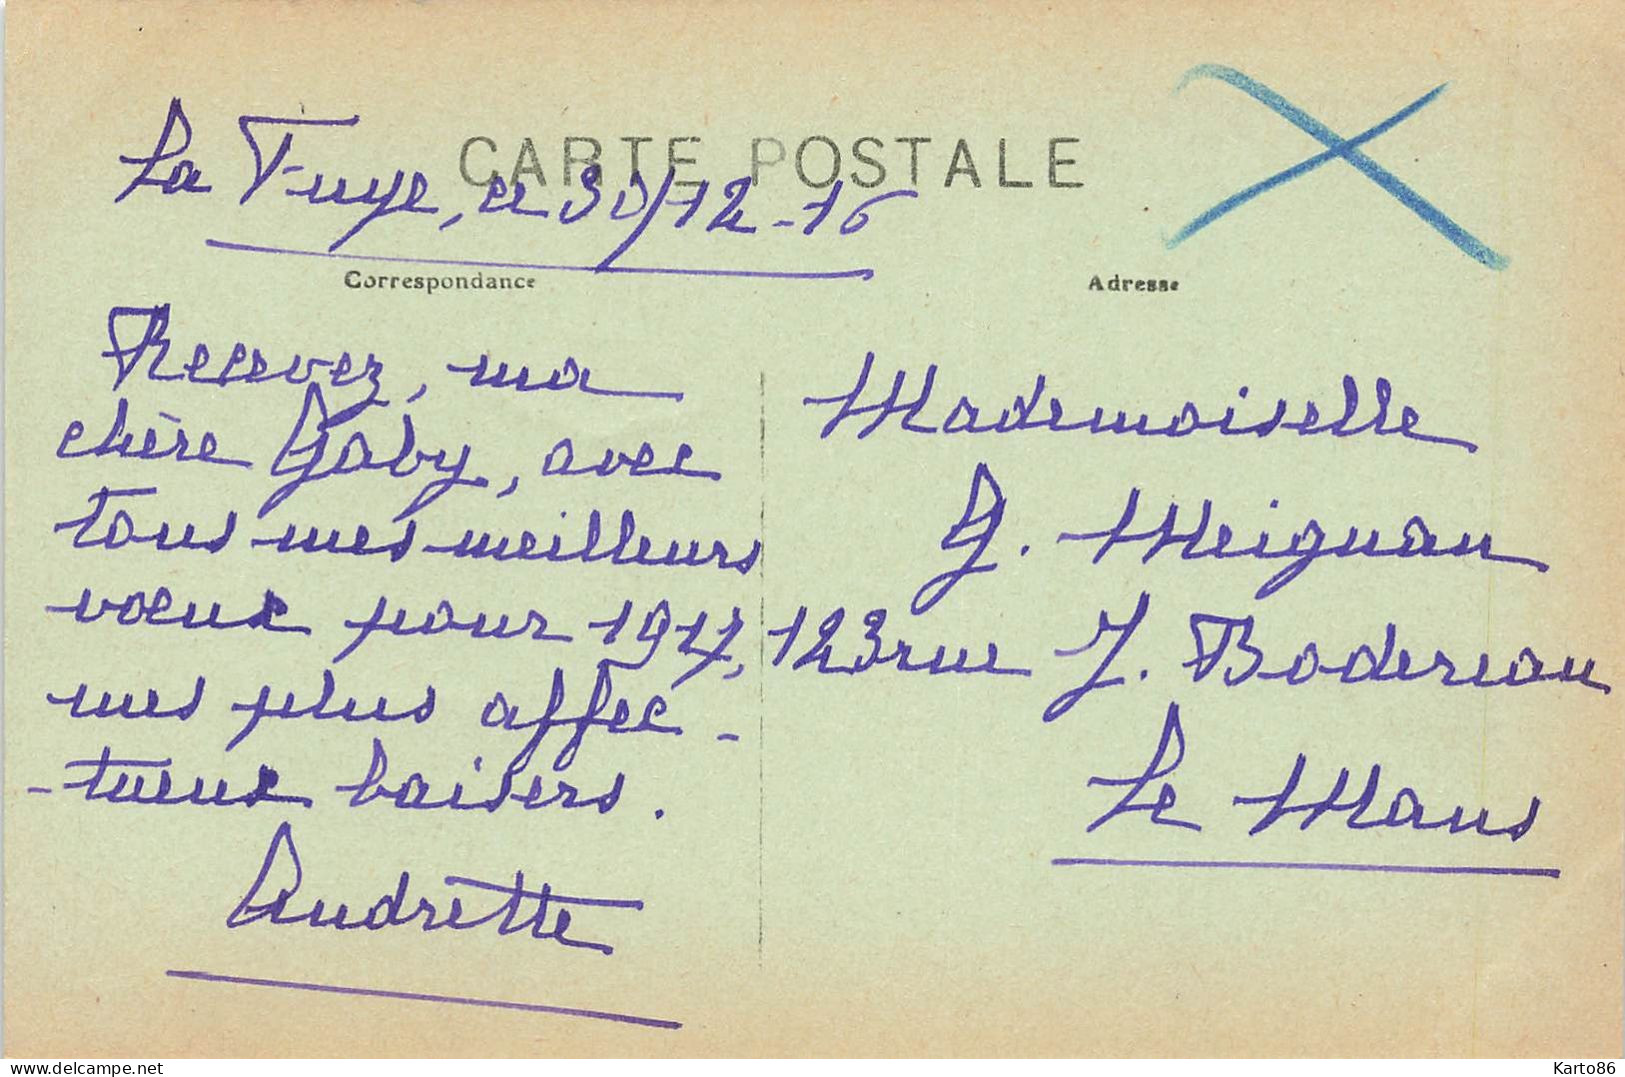 CARTE POSTALE
La Tuye, ce 30/12-16
Correspondance
Adresse
Recevez, ma
chère Gaby, avec
tous mes meilleurs
voeux pour 1917,
mes plus affec-
-tueux baisers.
Andrette
Mademoiselle
G. Meignan
123 rue J. Bodereau
Le Mans
Karto86